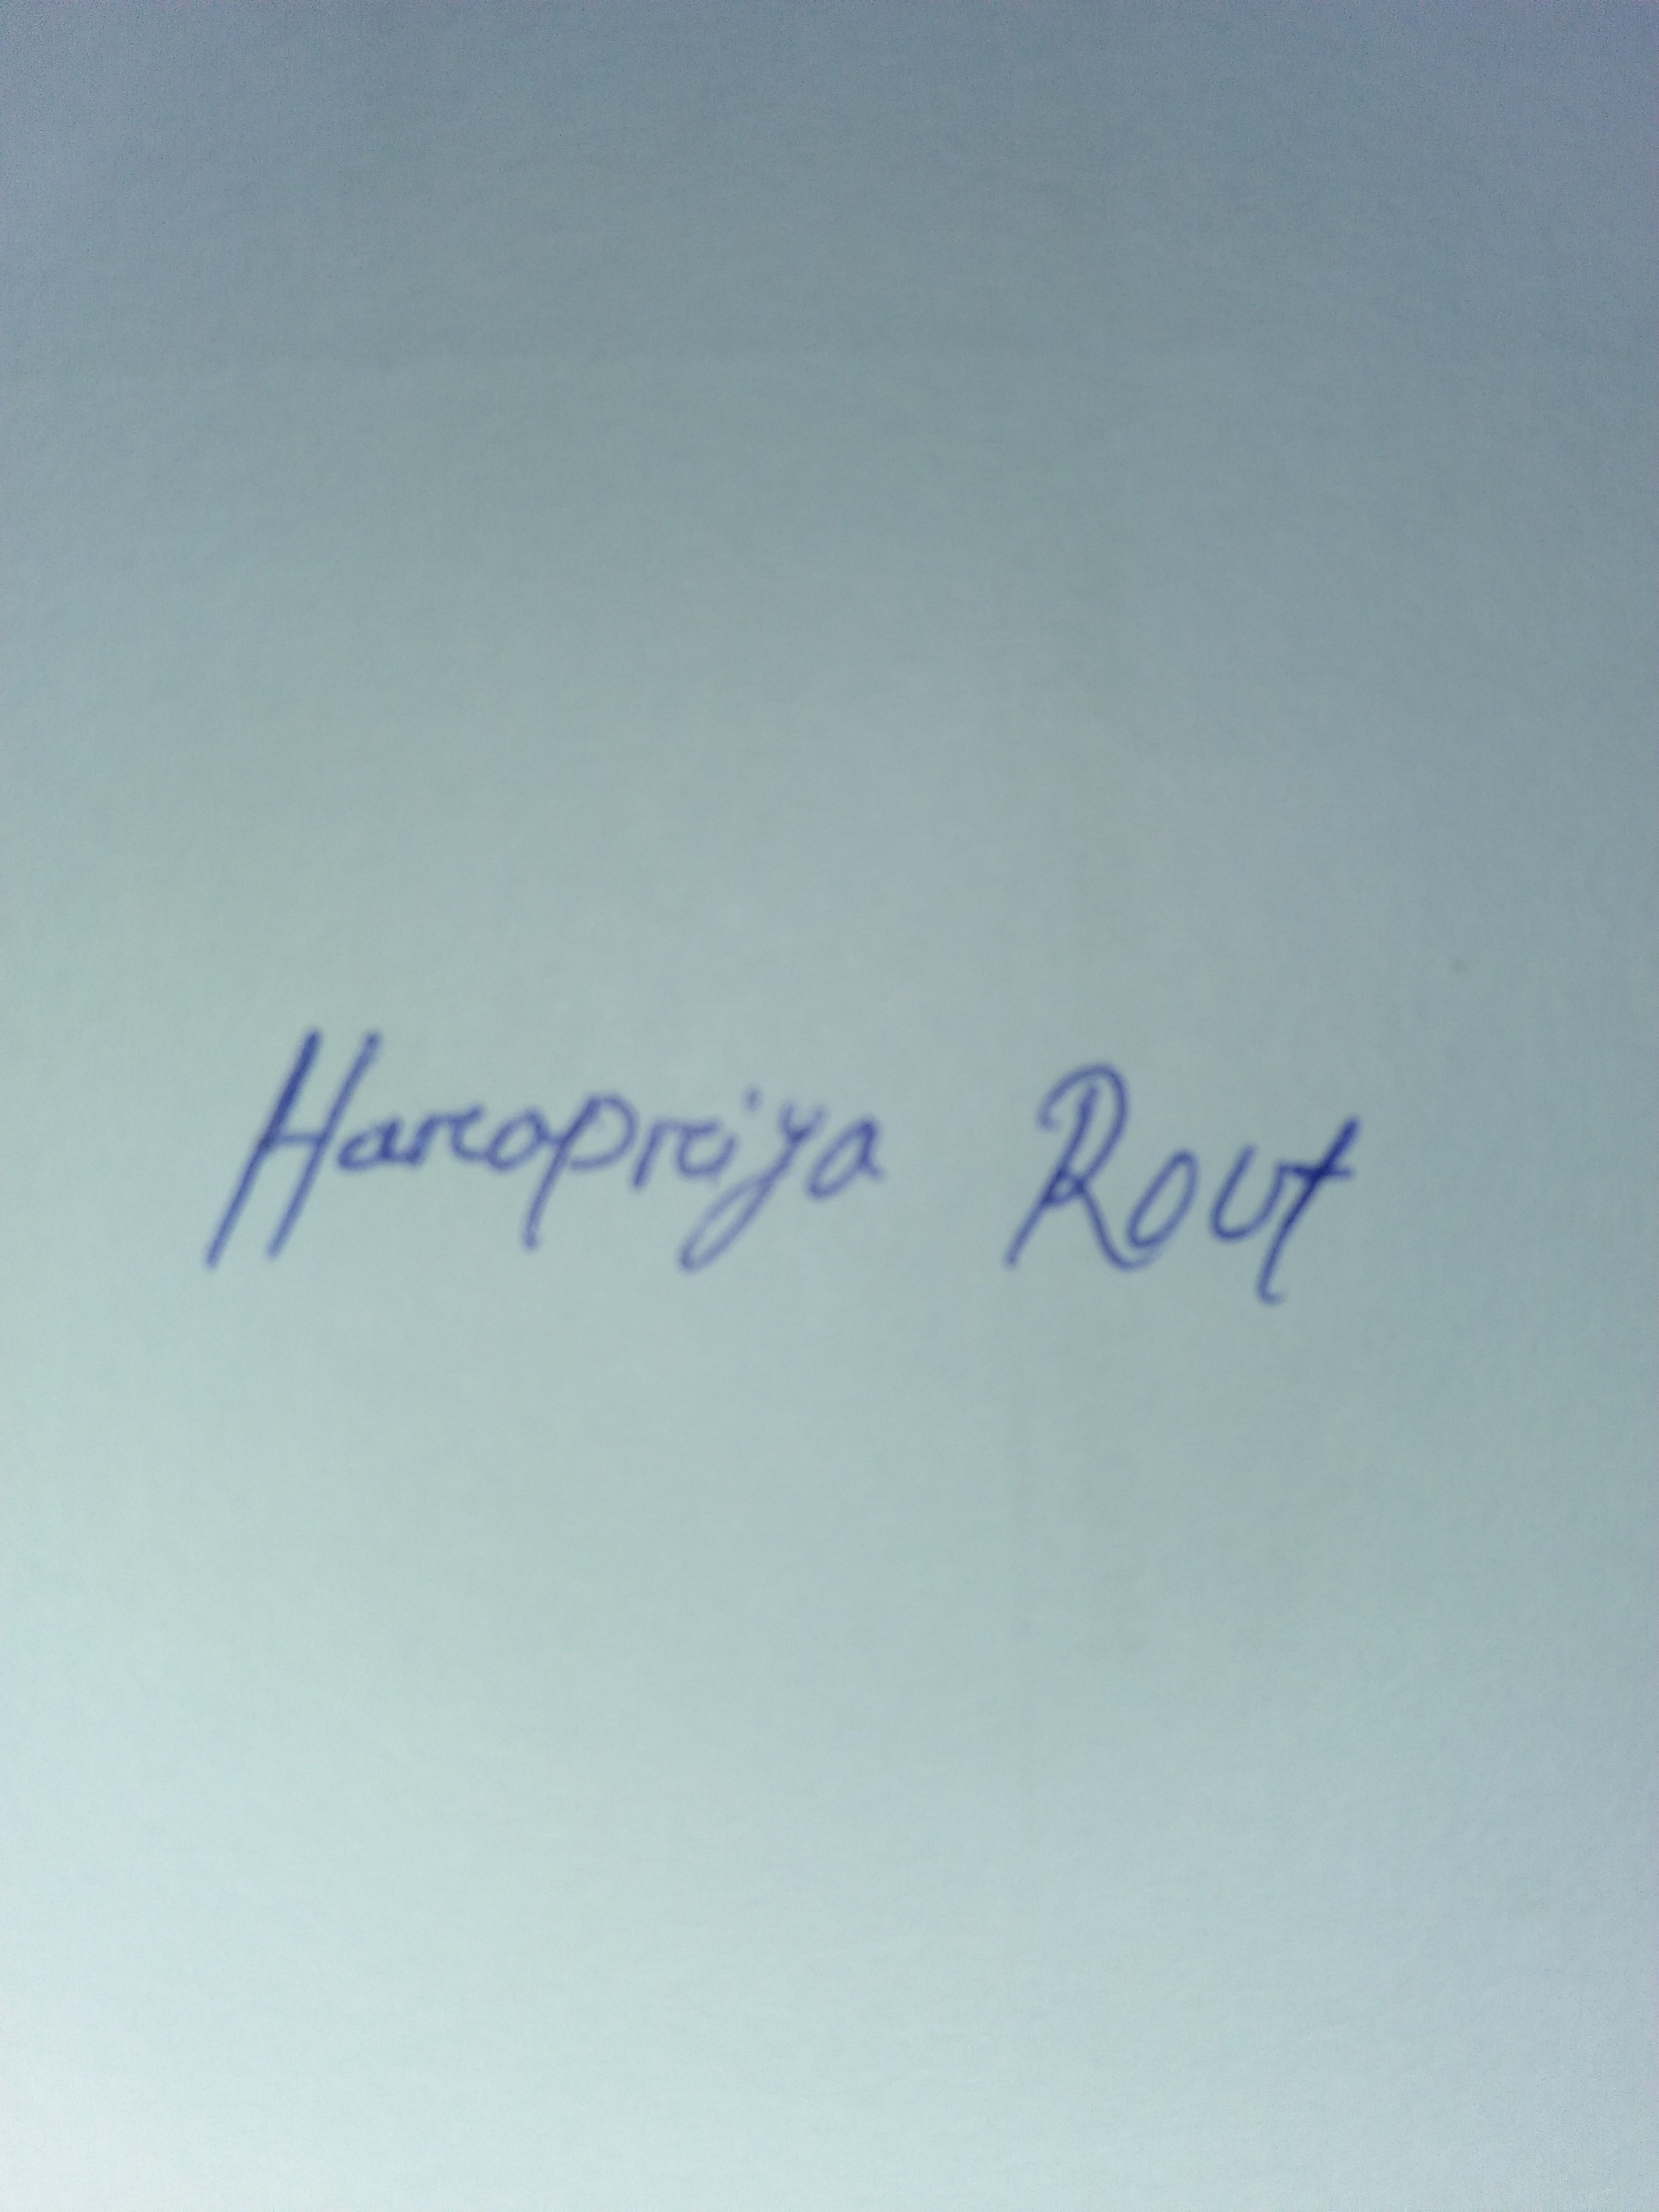 Haropriya Rout